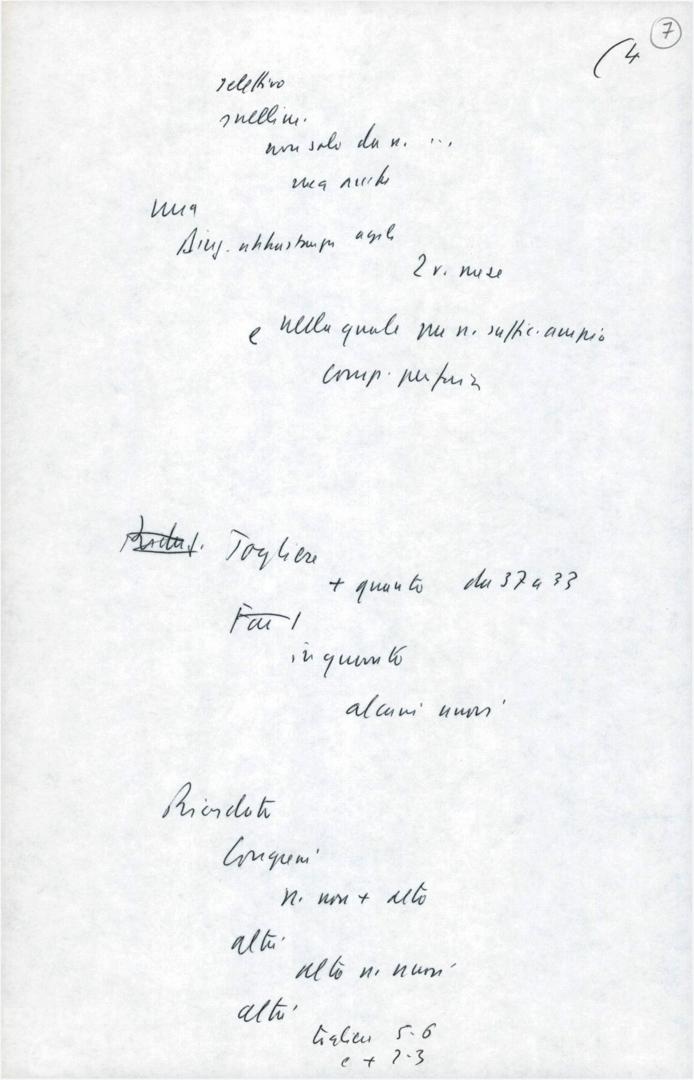 7
(4
selettivo
snellim.
non solo du n. ...
ma anche
ma
Dirg. abbastanza agile
2 v. mese
e nella quale per n. suffic. ampio
comp.
Togliere
+ quanto da 37 a 33
Far 1
in quanto
alcuni nuovi
Ricordate
Congressi
n. non + alto
altri
alto n. nuovi
altri
togliere 5-6
e + 2-3